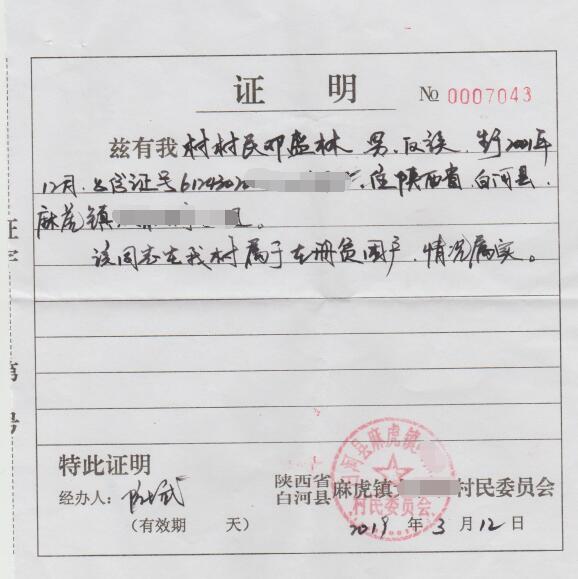 证 明
No 0007043
兹有我村村民邓盛林 男,汉族,生于2001年
12月,公民证号6124302,住陕西省,白河县,
麻虎镇。
该同志在我村属于在册贫困户,情况属实。
证 字 第 号
特此证明
经办人:
(有效期 天)
陕西省
白河县 麻虎镇 村民委员会
白河县麻虎镇
村民委员会
2019 年 3 月 12 日